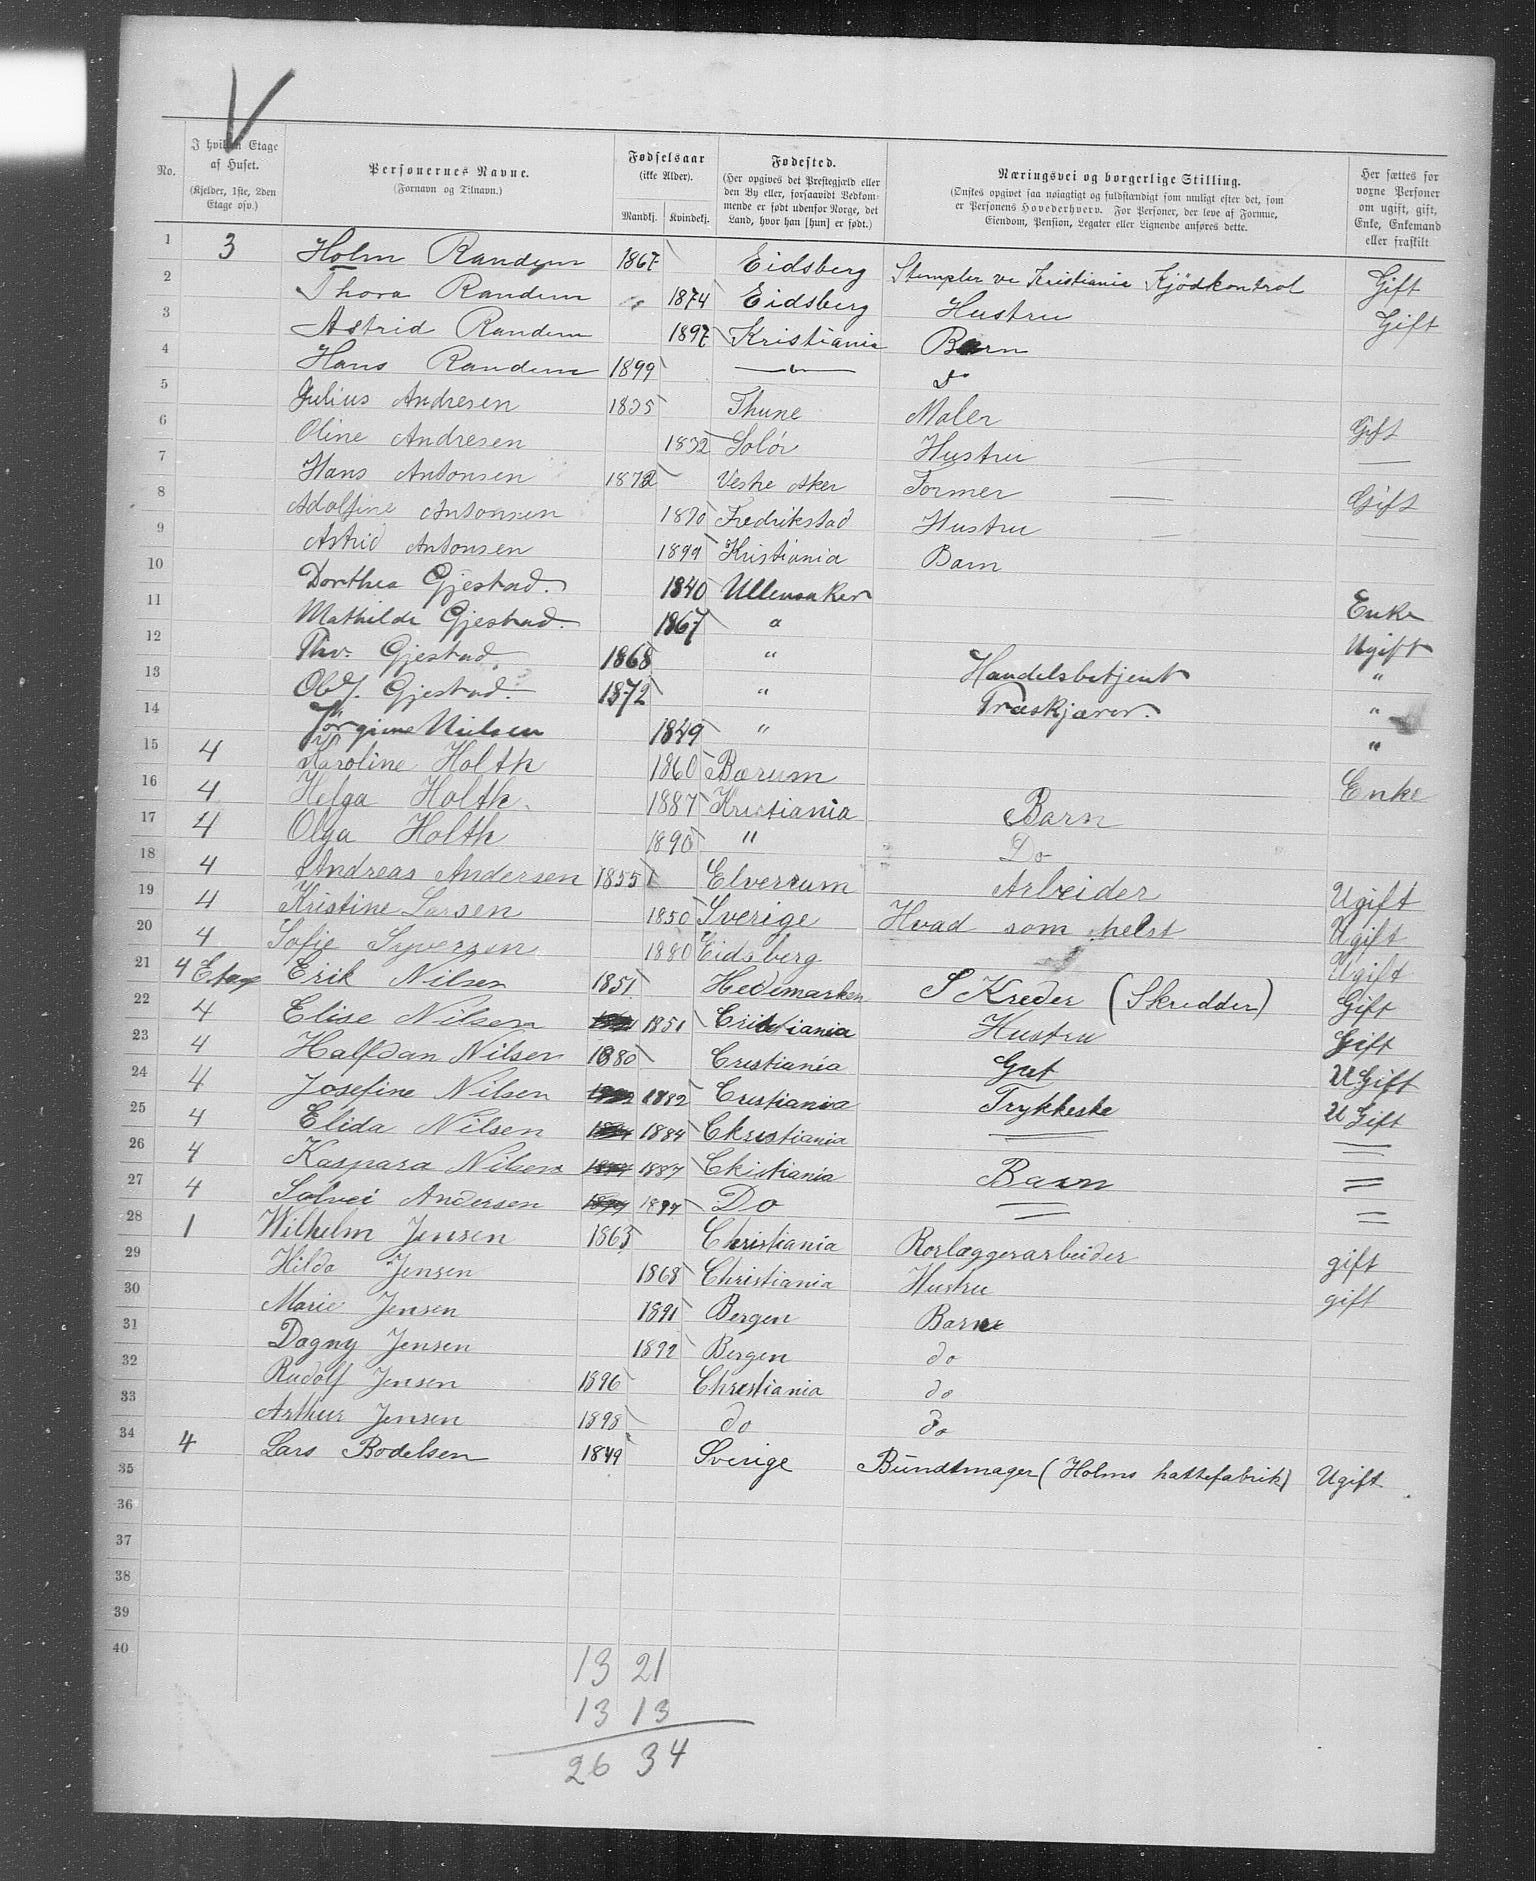 No. I hvilken Etage af Huset. (Kjelder, 1ste, 2den Etage osv.) Personernes Navne. (Fornavn og Tilnavn.) Fødselsaar (ikke Alder). Mandkj. Kvindekj. Fødested. (Her opgives det Prestegjæld eller den By eller, forsaavidt Vedkommende er født udenfor Norge, det Land, hvor han [hun] er født.) Næringsvei og borgerlige Stilling. (Ønskes opgivet saa nøiagtigt og fuldstændigt som muligt efter det, som er Personens Hovederhverv. For Personer, der leve af Formue, Eiendom, Pension, Legater eller Lignende anføres dette. Her sættes for voxne Personer om ugift, gift, Enke, Enkemand eller fraskilt
1 3 Holm Randem 1867 Eidsberg Stempler ve Kristiania Kjödkontrol Gift
2 Thora Randem 1874 Eidsberg Hustru Gift
3 Astrid Randem 1897 Kristiania Barn
4 Hans Randem 1899 —"— Do
5 Julius Andresen 1835 Thune Maler Gift
6 Oline Andresen 1832 Solör Hustru —
7 Hans Antonsen 1872 Vestre Aker Former — Gift
8 Adolfine Antonsen 1870 Fredrikstad Hustru —
9 Astrid Antonsen 1899 Kristiania Barn
10 Dorthea Gjestad. 1840 Ullensaker Enke
11 Mathilde Gjestad. 1867 " Ugift
12 Gjestad. 1868 " Handelsbetjent "
13 Gjestad. 1872 " Træskjærer. "
14 Jørgine Nielsen 1849 " "
15 4 Karoline Holth 1860 Bærum Enke
16 4 Helga Holth. 1887 Kristiania Barn
17 4 Olga Holth 1890 " Do
18 4 Andreas Andersen 1855 Elverum Arbeider Ugift
19 4 Kristine Larsen 1850 Sverige Hvad som helst Ugift
20 4 Sofie Syversen 1880 Eidsberg Ugift
21 4 Etage Erik Nilsen 1851 Hedemarken S Kreder (Skredder) Gift
22 4 Elise Nilsen 1851 Cristiania Hustru Gift
23 4 Halfdan Nilsen 1880 Cristiania Gut U Gift
24 4 Josefine Nilsen 1882 Cristiania Trykkeske U Gift
25 4 Elida Nilsen 1884 Christiania = =
26 4 Kaspara Nilsen 1887 Chistiania Barn =
27 4 Solvei Andersen 1897 Do = =
28 1 Wilhelm Jensen 1863 Christiania Rorlæggerarbeider gift
29 Hilda Jensen 1868 Christiania Hustru gift
30 Marie Jensen 1891 Bergen Barn
31 Dagny Jensen 1892 Bergen do
32 Rudolf Jensen 1896 Christiania do
33 Arthur Jensen 1898 do do
34 4 Lars Bodelsen 1849 Sverige Bundtmager (Holms hattefabrik) Ugift
35
36
37
38
39
40
13 21
13 13
26 34